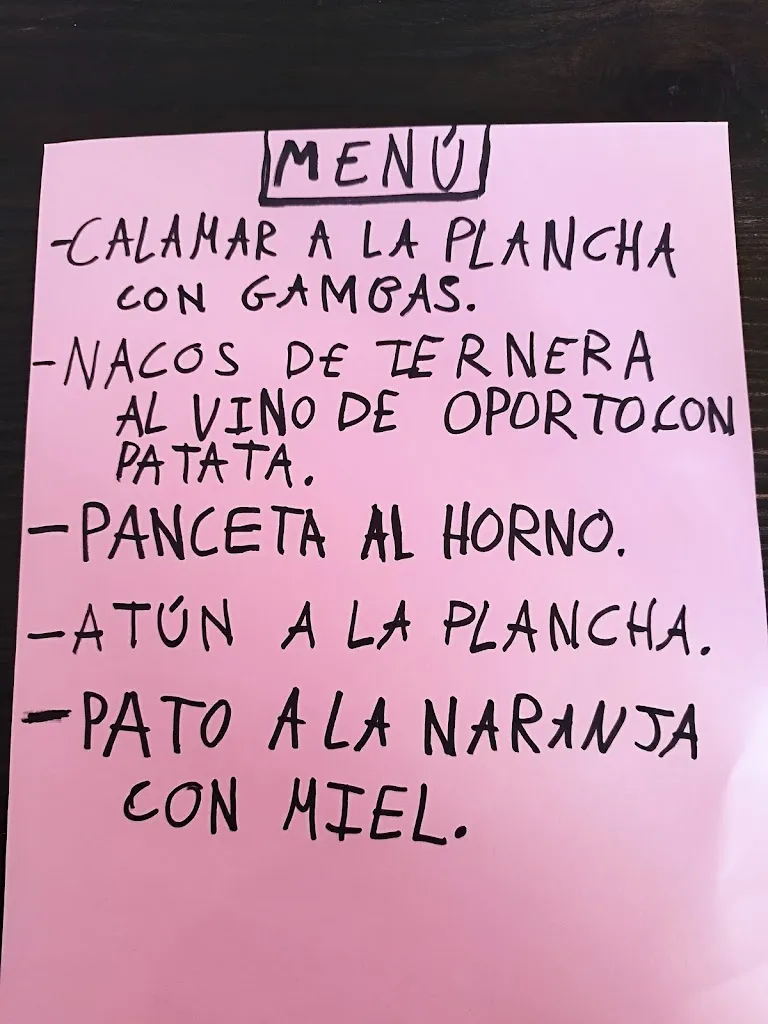 MENÚ
-CALAMAR A LA PLANCHA
CON GAMBAS.
-NACOS DE TERNERA
AL VINO DE OPORTO CON
PATATA.
-PANCETA AL HORNO.
-ATÚN A LA PLANCHA.
-PATO A LA NARANJA
CON MIEL.